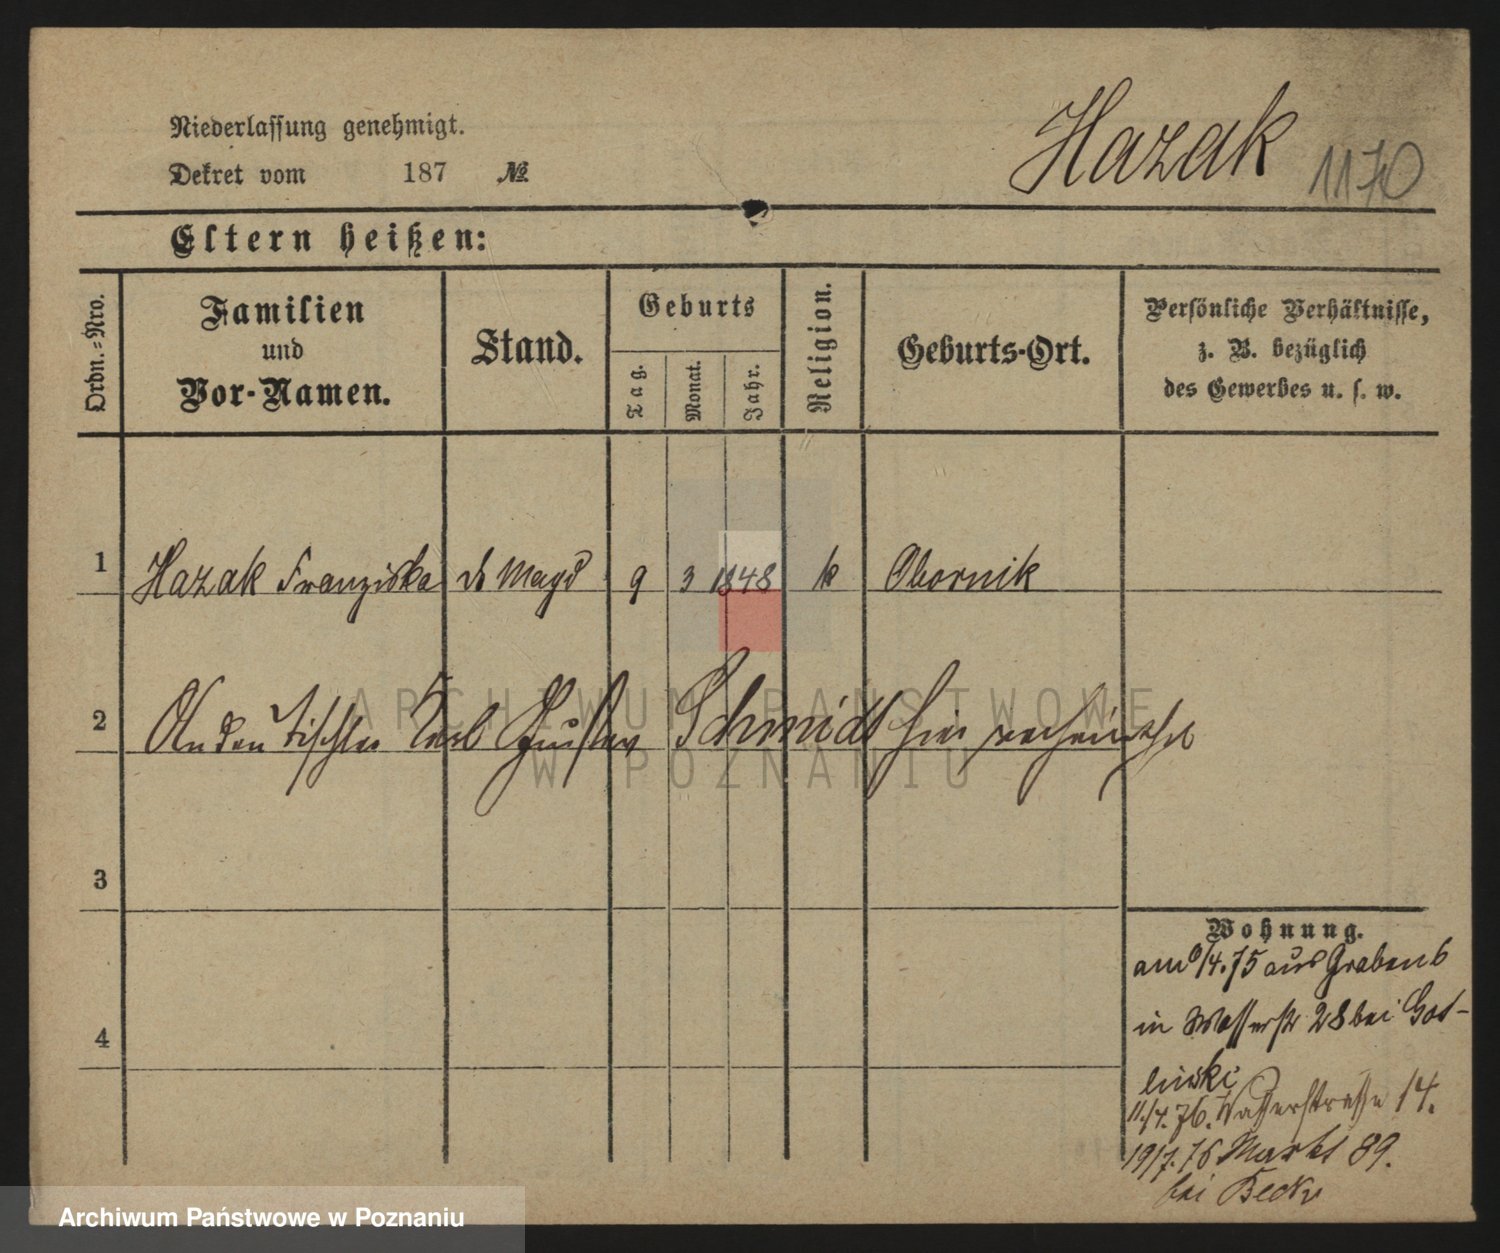 Niederlassung genehmigt.
Dekret vom 187 №
Hazak 1170
Eltern heißen:
Ordn.-Nro.
Familien
und
Vor-Namen.
Stand.
Geburts
Tag.
Monat.
Jahr.
Religion.
Geburts-Ort.
Persönliche Verhältnisse,
z. B. bezüglich
des Gewerbes u. s. w.
1 Hazak Franziska Magd 9 3 1848 k Obornik
2 An den Tischler Karl Gustav Schmidt hier verheirathet
3
4
Wohnung.
am /4.75 aus Graben 6
in Wasserstr 28 bei Gos-
linski
11./4.76. Wasserstrasse 14.
19/7.76 Markt 89.
bei Beck
ARCHIWUM PAŃSTWOWE
W POZNANIU
Archiwum Państwowe w Poznaniu